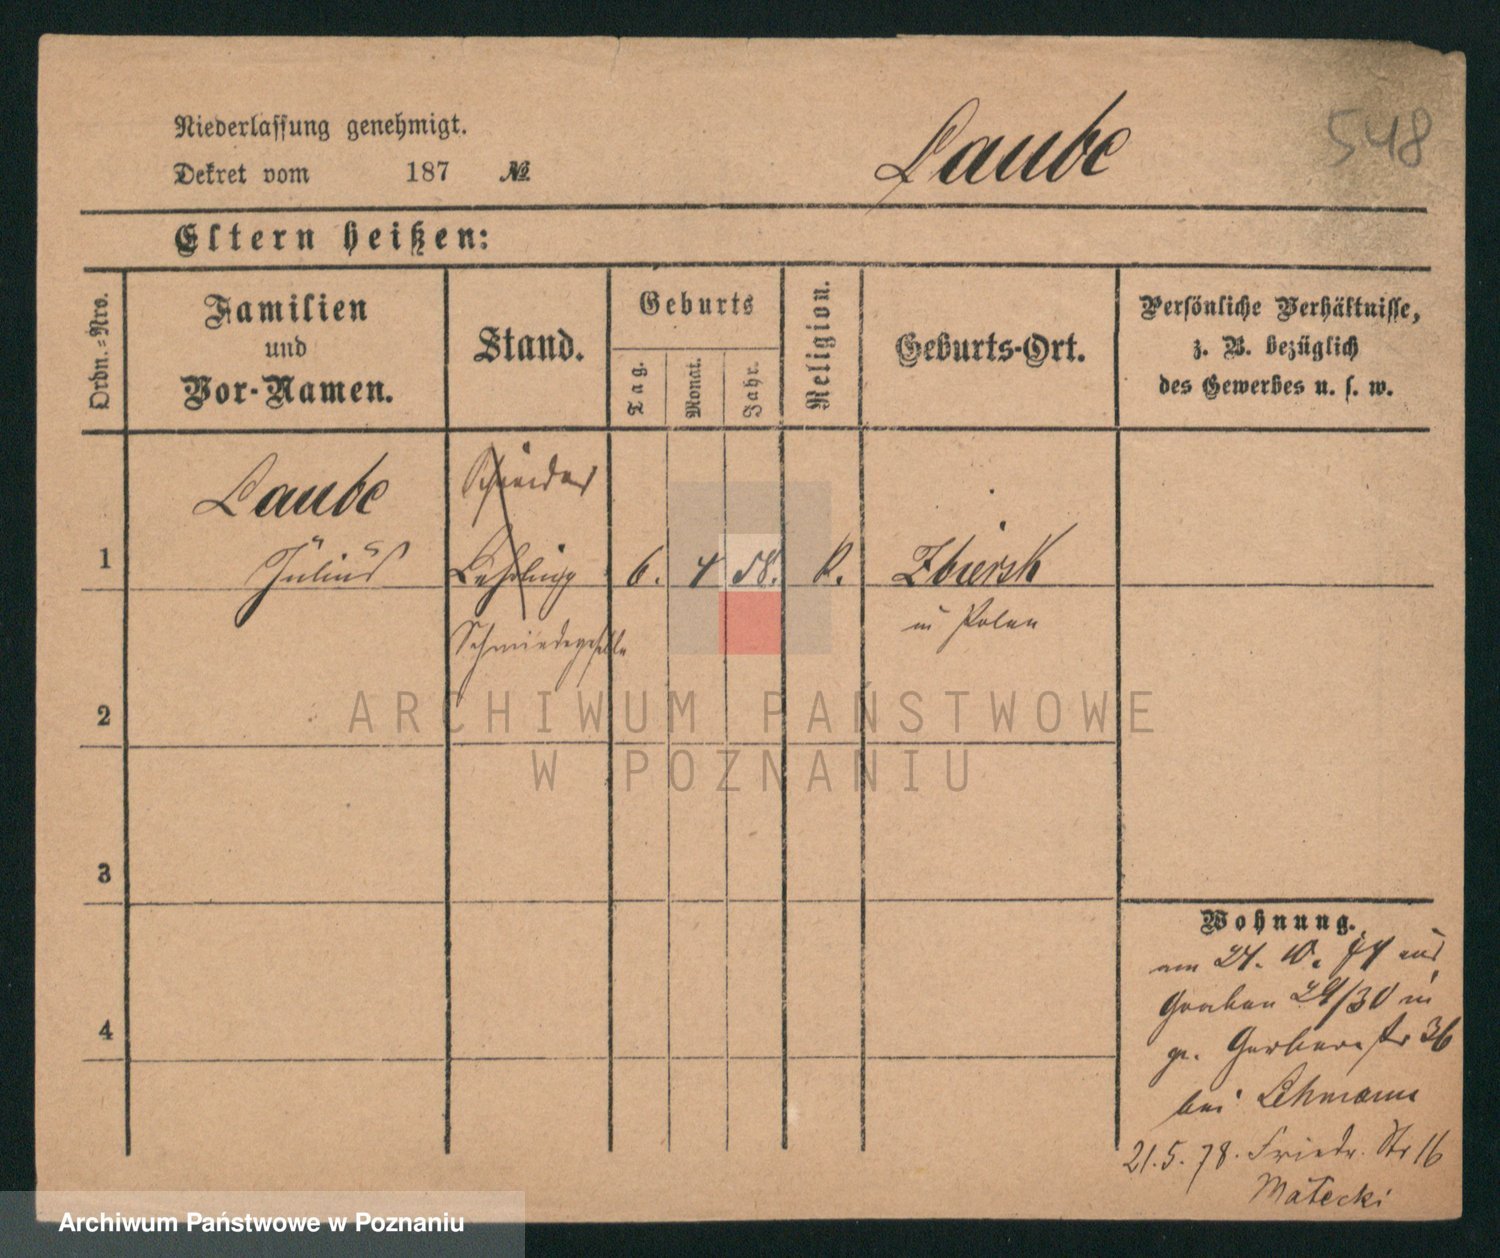 Niederlassung genehmigt.
Dekret vom 187 №
Laube
548
Eltern heißen:
Ordn.=Nro.
Familien
und
Vor-Namen.
Stand.
Geburts
Tag.
Monat.
Jahr.
Religion.
Geburts-Ort.
Persönliche Verhältnisse,
z. B. bezüglich
des Gewerbes u. s. w.
1
Laube
Julius
Schneider
Lehrling
Schmiedegeselle
6. 4 58.
K.
Zbiersk
in Polen
2
3
4
Wohnung.
am 24. 10. 77 aus
Graben 29/30 in
gr. Gerberstr 36
bei Lehmann
21.5.78. Friedr. Str 16
Matecki
ARCHIWUM PAŃSTWOWE
W POZNANIU
Archiwum Państwowe w Poznaniu